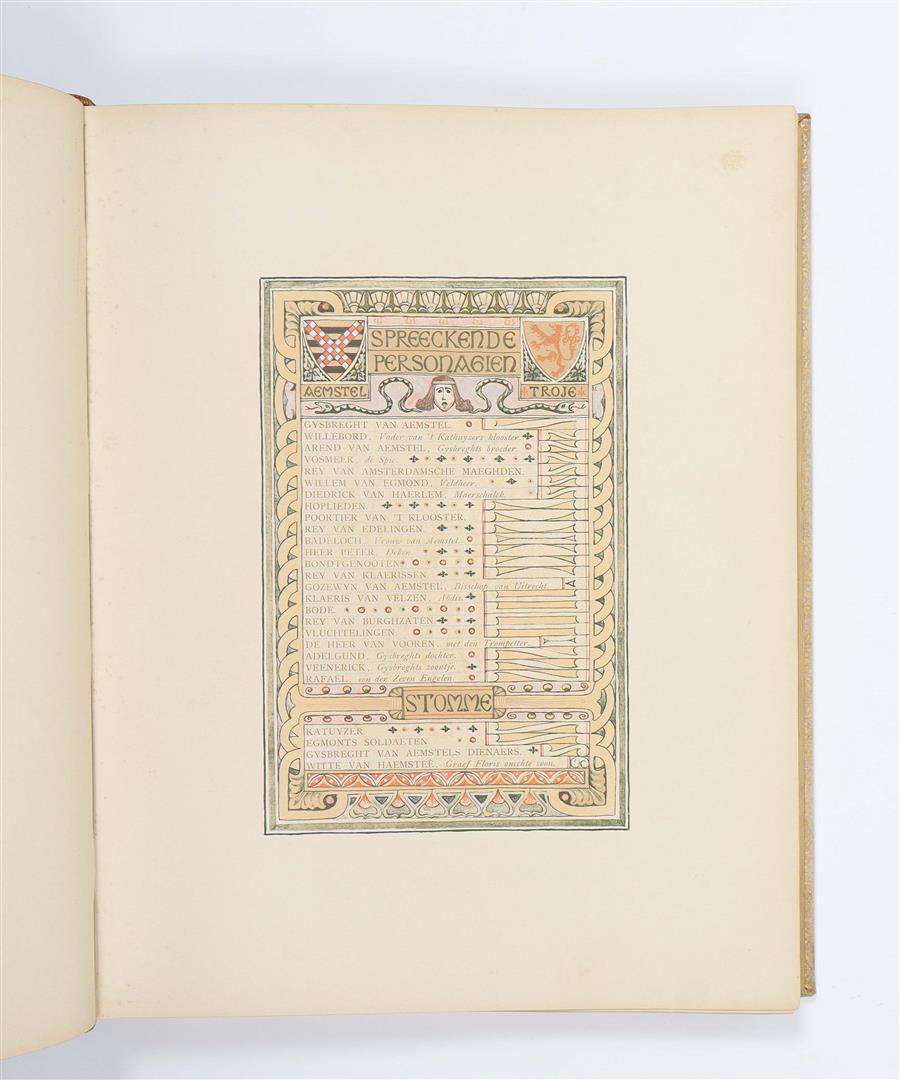 SPREECKENDE
PERSONAGIEN
AEMSTEL TROJE
GYSBREGHT VAN AEMSTEL.
WILLEBORD, Vader van 't Kathuyzers klooster.
AREND VAN AEMSTEL, Gysbreghts broeder.
VOSMEER, de Spie.
REY VAN AMSTERDAMSCHE MAEGHDEN.
WILLEM VAN EGMOND, Veldheer.
DIEDRICK VAN HAERLEM, Maerschalck.
HOPLIEDEN.
POORTIER VAN 'T KLOOSTER.
REY VAN EDELINGEN.
BADELOCH, Vrouw van Aemstel.
HEER PETER, Deken.
BONDTGENOOTEN.
REY VAN KLAERISSEN.
GOZEWYN VAN AEMSTEL, Bisschop van Uitrecht.
KLAERIS VAN VELZEN, Abdis.
BODE.
REY VAN BURGHZATEN.
VLUCHTELINGEN.
DE HEER VAN VOOREN, met den Trompetter.
ADELGUND, Gysbreghts dochter.
VEENERICK, Gysbreghts zoontje.
RAFAËL, een der Zeven Engelen.
STOMME
KATUYZER.
EGMONTS SOLDAETEN.
GYSBREGHT VAN AEMSTELS DIENAERS.
WITTE VAN HAEMSTEÊ, Graef Floris onechte zoon.